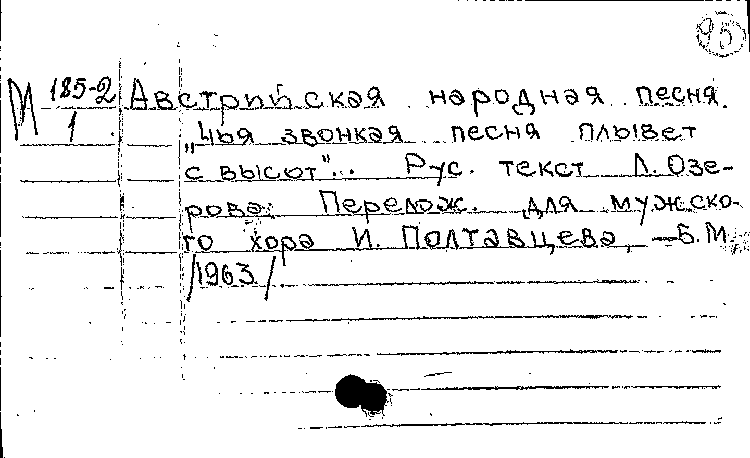 95
М 185-2 Австрийская народная песня.
1 „Чья звонкая песня плывет
с высот"... Рус. текст Л. Озе-
рова. Перелож. для мужско-
го хора И. Полтавцева, — Б.М.
/1963/.